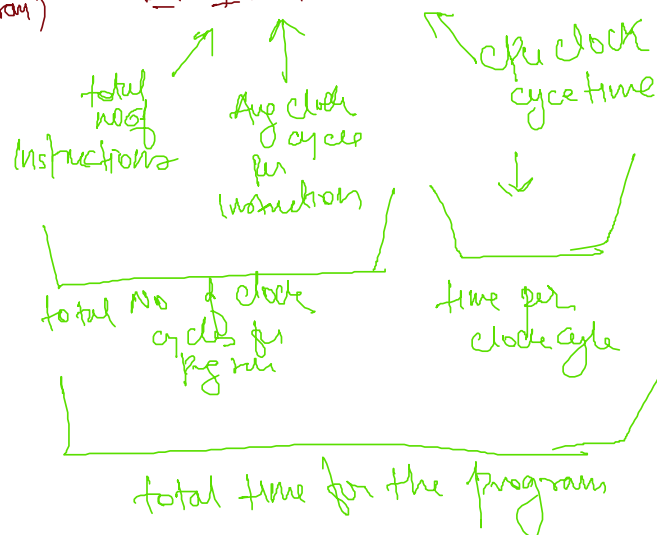 ram)
total
no of
Instructions
Avg clock
cycle
per
Instructions
CPU clock
cycetime
total No of clock
cycles for
program
time per
clock cycle
total time for the program